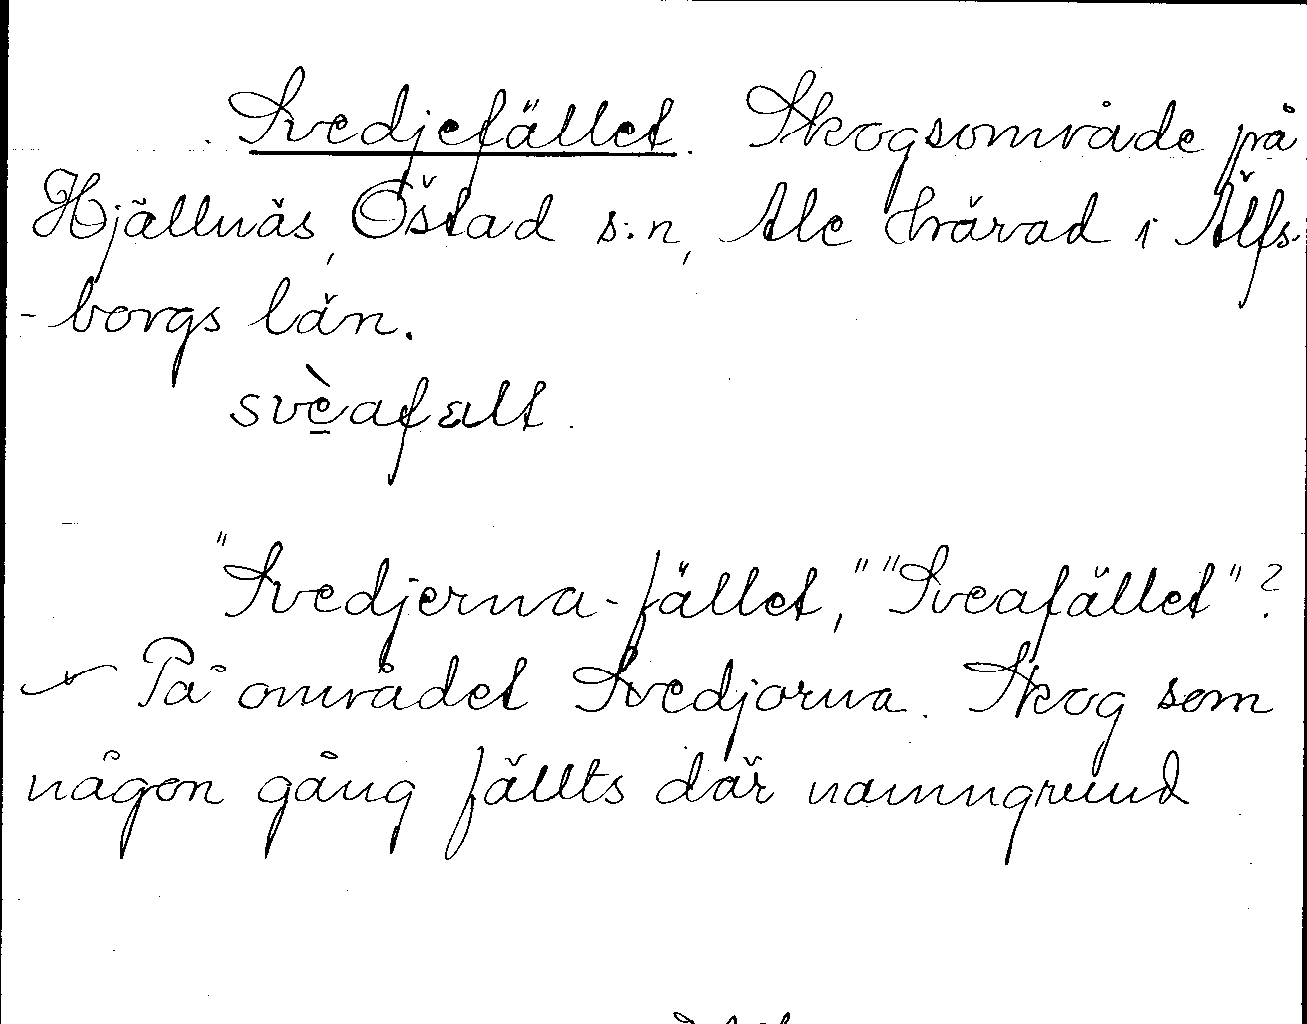 Svedjefället. Skogsområde på
Hjällnäs, Östad s:n, Ale härad i Älfs-
-borgs län.
svèafalt.
"Svedjerna-fället," "Sveafället"?
På området Svedjorna. Skog som
någon gång fällts där namngrund